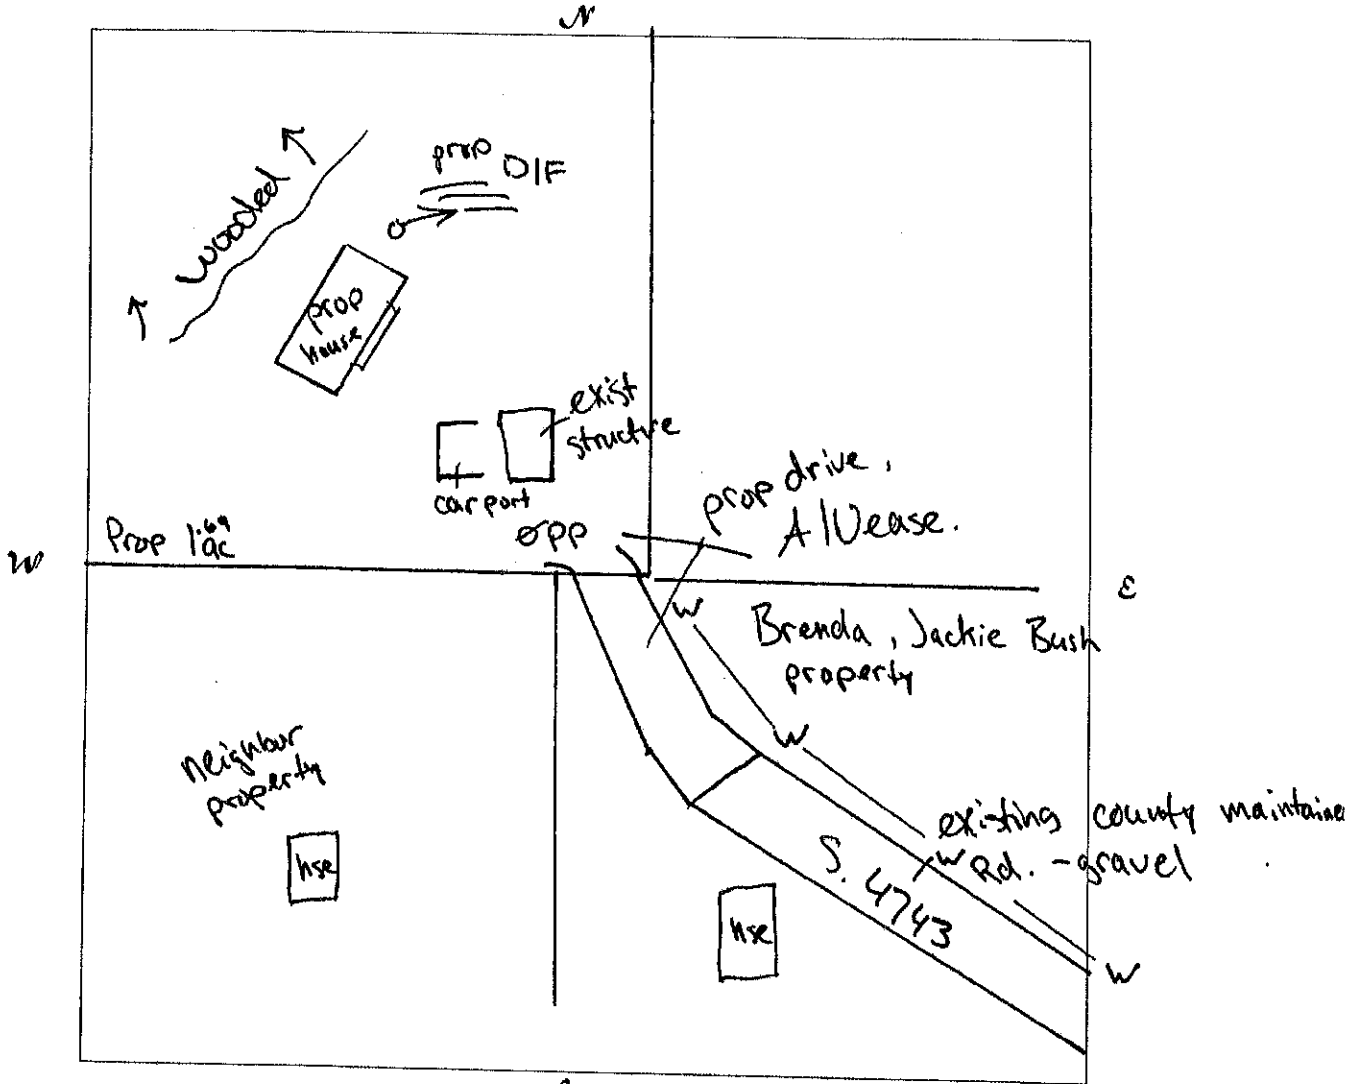 N
wooded
prop
D/F
prop
house
exist
structure
carport
prop drive,
A/U ease.
Prop 1.69
ac
PP
W
E
W
Brenda, Jackie Bush
property
W
neighbor
property
existing county maintained
W Rd. - gravel
hse
S. 4743
hse
W